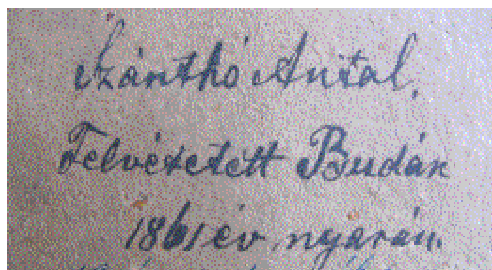 Szánthó Antal,
Felvétetett Budán
1861 év nyarán.